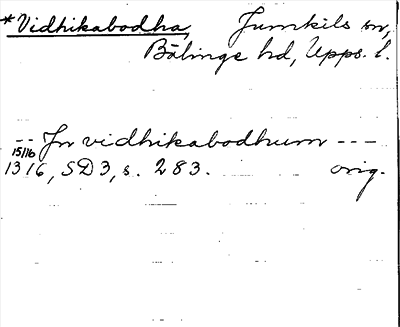 *Vidhikabodha, Jumkils sn,
Bälinge hd, Upps. l.
-- In vidhikabodhum ---
15/16
1316, SD3, s. 283. orig.